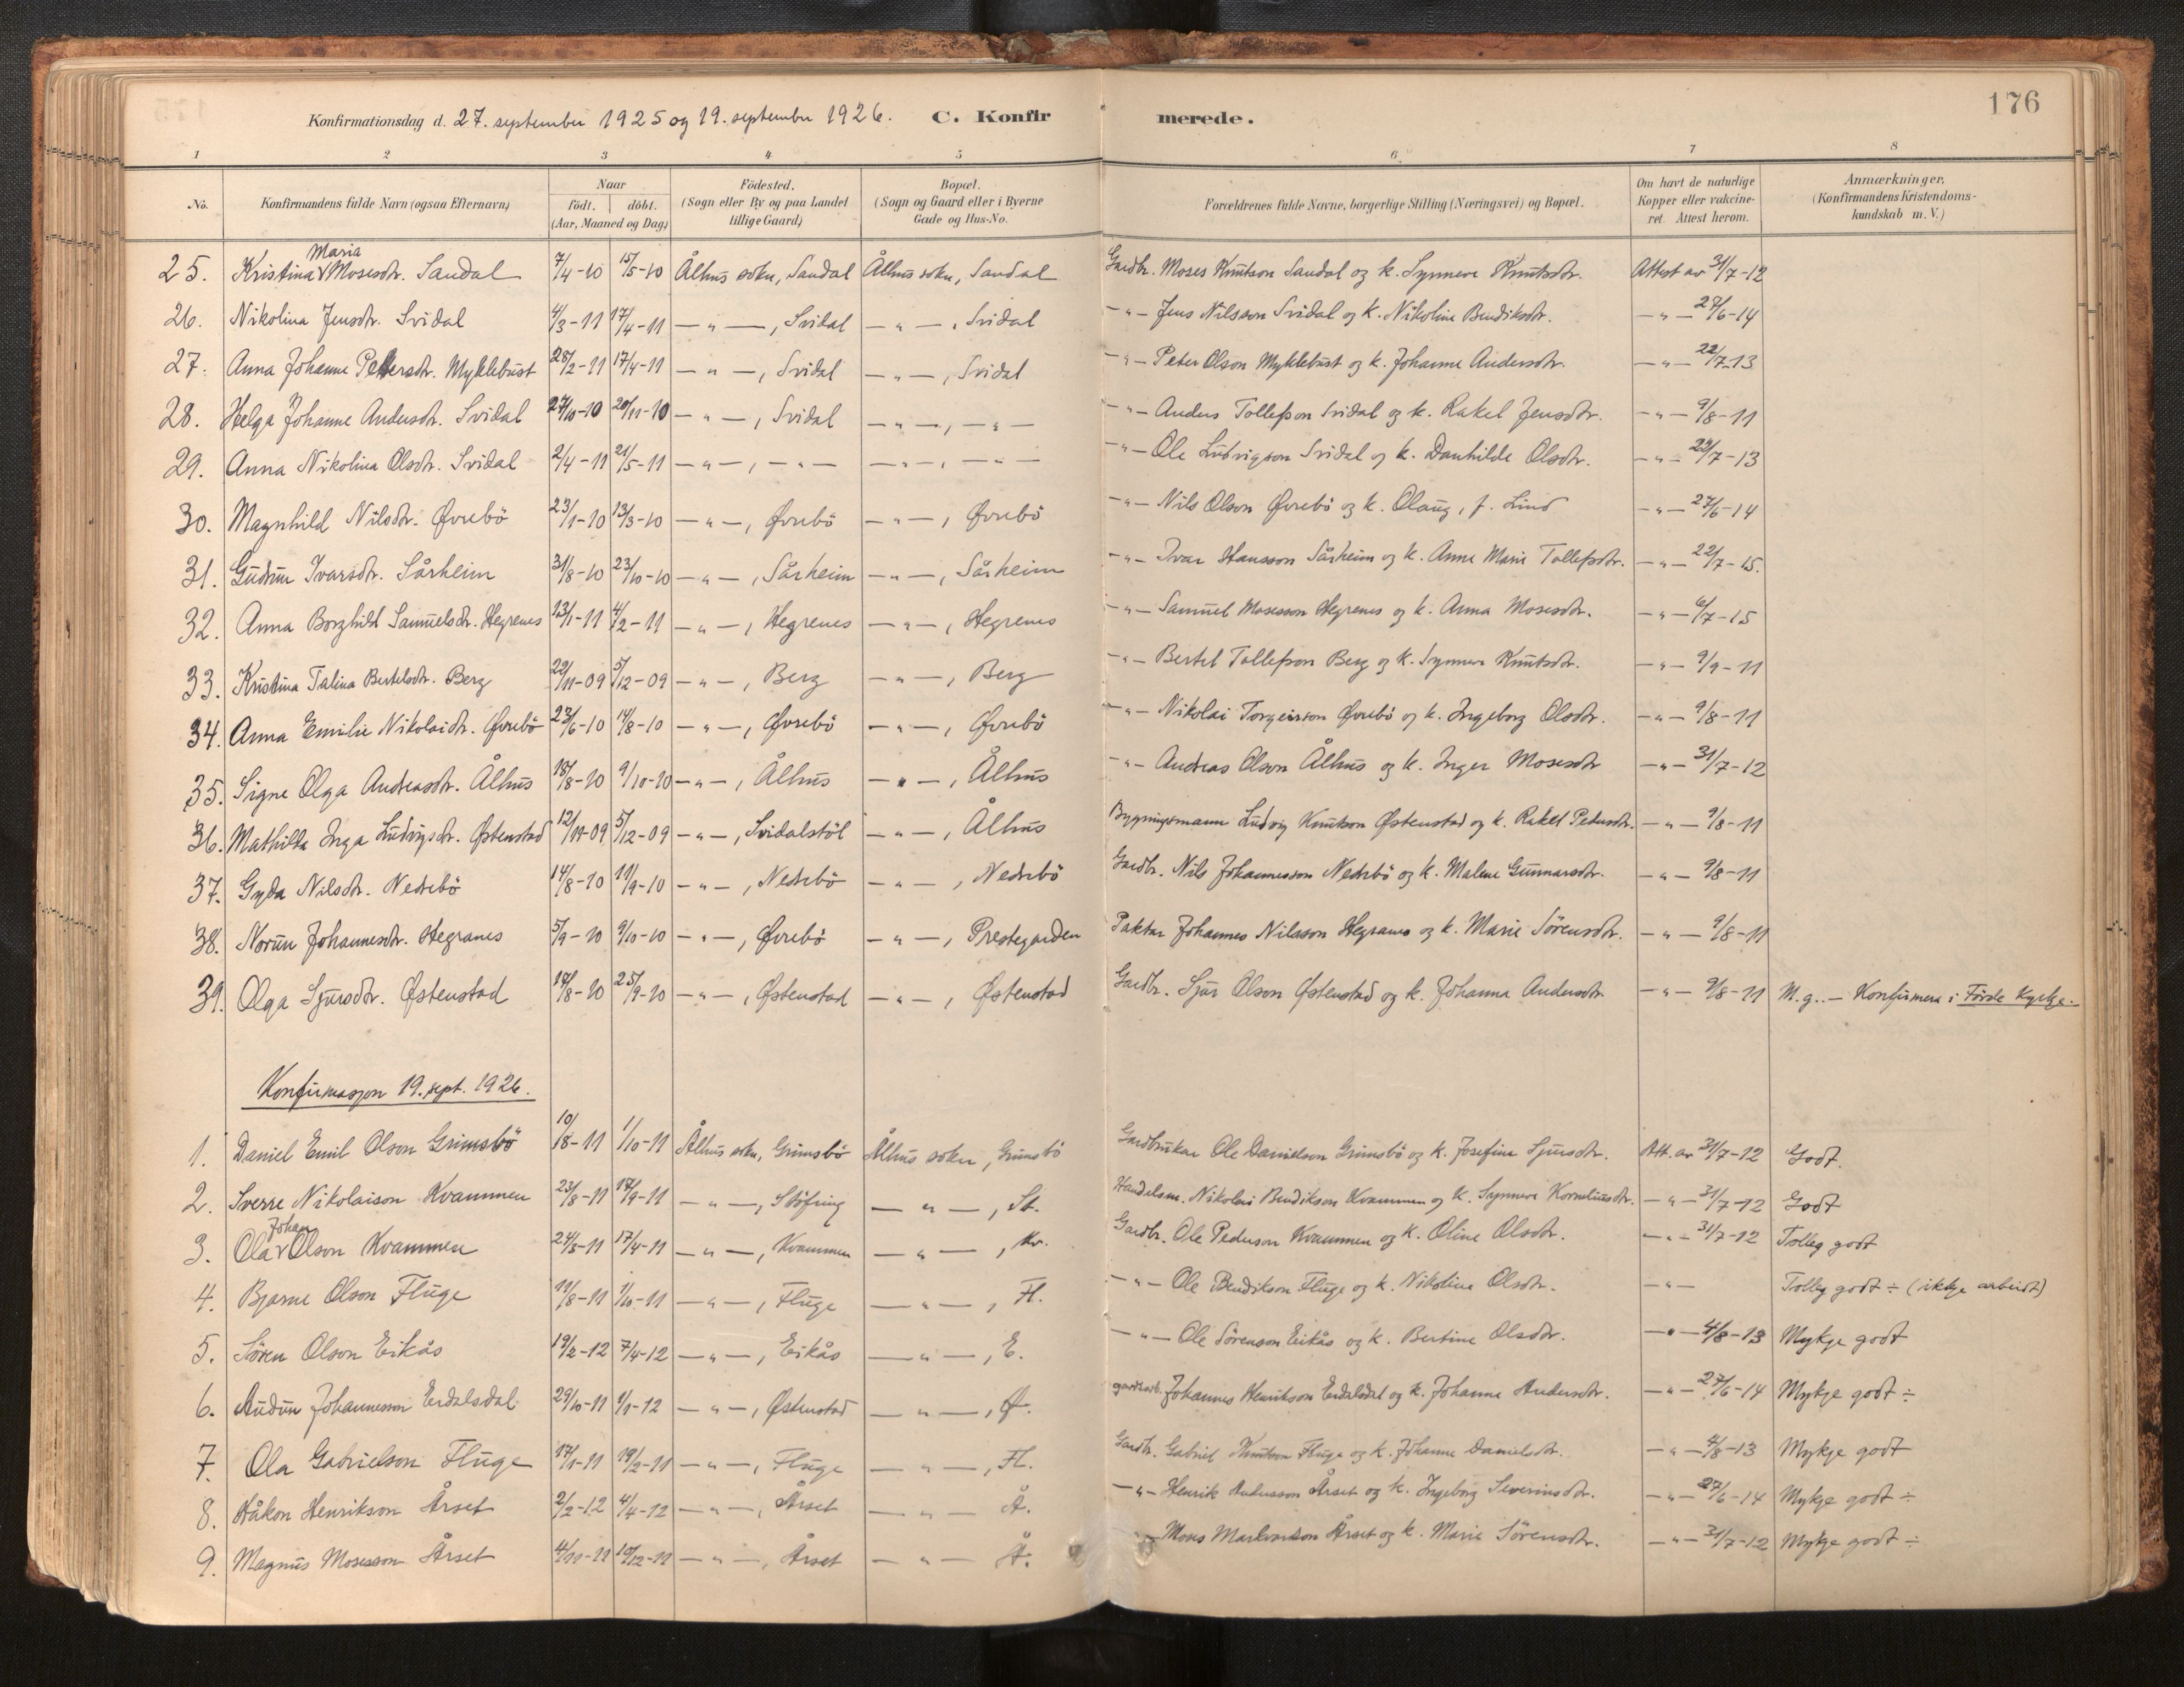 176
Konfirmationsdag d. 27. september 1925 og 19. september 1926. C. Konfirmerede.
1 2 3 4 5 6 7 8
No. Konfirmandens fulde Navn (ogsaa Efternavn) Naar født. døbt. (Aar, Maaned og Dag) Födested. (Sogn eller By og paa Landet tillige Gaard) Bopæl. (Sogn og Gaard eller i Byerne Gade og Hus-No. Forældrenes fulde Navne, borgerlige Stilling (Næringsvei) og Bopæl. Om havt de naturlige Kopper eller vakcineret. Attest herom. Anmærkninger. (Konfirmandens Kristendomskundskab m. V.)
25. Kristina Maria Mosesdtr. Sandal 7/4-10 15/5-10 Ålhus sokn, Sandal Ålhus sokn, Sandal Gardbr. Moses Knutson Sandal og k. Synneve Knutsdtr. Attest av 31/7-12
26. Nikolina Jensdtr. Svidal 4/3-11 17/4-11 —"—, Svidal —"—, Svidal —"— Jens Nilsson Svidal og k. Nikoline Bendiksdtr. —"— 27/6-14
27. Anna Johanne Petersdtr. Myklebust 28/2-11 17/4-11 —"—, Svidal —"—, Svidal —"— Peter Olson Myklebust og k. Johanne Andersdtr. —"— 22/7-13
28. Helga Johanne Andersdtr. Svidal 24/10-10 20/11-10 —"—, Svidal —"—, —"— —"— Anders Tollefson Svidal og k. Rakel Jensdtr. —"— 9/8-11
29. Anna Nikolina Olsdtr. Svidal 2/4-11 21/5-11 —"—, —"— —"—, —"— —"— Ole Ludvigson Svidal og k. Danhilde Olsdtr. —"— 22/7-13
30. Magnhild Nilsdtr. Øvrebö 23/1-10 13/3-10 —"—, Øvrebö —"—, Øvrebö —"— Nils Olson Øvrebö og k. Olaug, f. Lind —"— 27/6-14
31. Gudrun Ivarsdtr. Sårheim 31/8-10 23/10-10 —"—, Sårheim —"—, Sårheim —"— Ivar Hansson Sårheim og k. Anne Marie Tollefsdtr. —"— 22/7-15.
32. Anna Borghild Samuelsdtr. Hegrenes 13/1-11 4/2-11 —"—, Hegrenes —"—, Hegrenes —"— Samuel Mosesson Hegrenes og k. Anna Mosesdtr. —"— 6/7-15
33. Kristina Talina Bertelsdtr. Berg 22/11-09 5/12-09 —"—, Berg —"—, Berg —"— Bertel Tollefson Berg og k. Synneve Knutsdtr. —"— 9/9-11
34. Anna Emilie Nikolaidtr. Øvrebö 23/6-10 14/8-10 —"—, Øvrebö —"—, Øvrebö —"— Nikolai Torgeirson Øvrebö og k. Ingeborg Olsdtr. —"— 9/8-11
35. Signe Olga Andreasdtr. Ålhus 18/8-10 9/10-10 —"—, Ålhus —"—, Ålhus —"— Andreas Olson Ålhus og k. Inger Mosesdtr —"— 31/7-12
36. Mathilda Inga Ludvigsdtr. Østenstad 12/11-09 5/12-09 —"—, Svidalstöl —"—, Ålhus Bygningsmann Ludvig Knutson Østenstad og k. Rakel Pedersdtr. —"— 9/8-11
37. Gyda Nilsdtr. Nedrebö 14/8-10 11/9-10 —"—, Nedrebö —"—, Nedrebö Gardbr. Nils Johannesson Nedrebö og k. Malene Gunnarsdtr. —"— 9/8-11
38. Norun Johannesdtr. Hegranes 5/9-10 9/10-10 —"—, Øvrebö —"—, Prestegarden Paktar Johannes Nilsson Hegranes og k. Marie Sörensdtr. —"— 9/8-11
39. Olga Sjursdtr. Østenstad 18/8-10 25/9-10 —"—, Østenstad —"—, Østenstad Gardbr. Sjur Olson Østenstad og k. Johanna Andersdtr —"— 9/8-11 M.g. — Konfirmera i Förde Kyrkje.
Konfirmasjon 19. sept. 1926.
1. Daniel Emil Olson Grimsbö 10/8-11 1/10-11 Ålhus sokn, Grimsbö Ålhus sokn, Grimsbö Gardbrukar Ole Danielson Grimsbö og k. Josefine Sjursdtr. Att. av 31/7-12 Godt.
2. Sverre Nikolaison Kvammen 23/8-11 17/9-11 —"—, Stöfring —"—, St. Handelsm. Nikolai Bendikson Kvammen og k. Synneve Korneliusdtr. —"— 31/7-12 Godt
3. Ola Johan Olson Kvammen 24/3-11 17/4-11 —"—, Kvammen —"—, Kv. Gardbr. Ole Pederson Kvammen og k. Oline Olsdtr. —"— 31/7-12 Tolleg godt
4. Bjarne Olson Fluge 11/8-11 1/10-11 —"—, Fluge —"—, Fl. —"— Ole Bendikson Fluge og k. Nikoline Olsdtr. —"— Tolleg godt ÷ (ikkje arbeidt)
5. Sören Olson Eikås 19/2-12 7/4-12 —"—, Eikås —"—, E. —"— Ole Sörenson Eikås og k. Bertine Olsdtr. —"— 4/8-13 Mykje godt
6. Audun Johannesson Erdalsdal 29/10-11 1/1-12 —"—, Østenstad —"—, Ø. gardsarb. Johannes Henrikson Erdalsdal og k. Johanne Andersdtr. —"— 27/6-14 Mykje godt ÷
7. Ola Gabrielson Fluge 17/1-11 19/2-11 —"—, Fluge —"—, Fl. Gardbr. Gabriel Knutson Fluge og k. Johanne Danielsdtr. —"— 4/8-13 Mykje godt
8. Håkon Henrikson Årset 2/2-12 4/4-12 —"—, Årset —"— Å. —"— Henrik Andersson Årset og k. Ingeborg Severinsdtr. —"— 27/6-14 Mykje godt ÷
9. Magnus Mosesson Årset 4/11-11 10/12-11 —"—, Årset —"— Å. —"— Moses Årset og k. Marie Sörensdtr. —"— 31/7-12 Mykje godt ÷